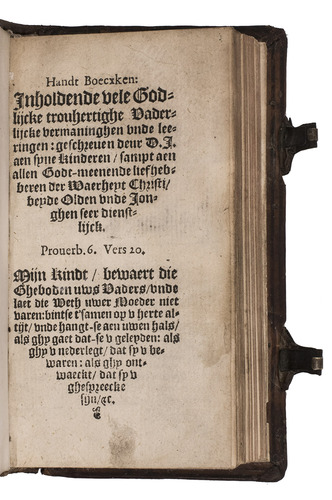 Handt Boecxken:
Inholdende vele God-
lijcke trouhertighe Vader-
lijcke vermaninghen vnde lee-
ringen: geschreuen deur D.J.
aen syne Kinderen / sampt aen
allen Godt-meenende liefheb-
beren der Waerheyt Christi/
beyde Olden vnde Jon-
ghen seer dienst-
lijck.
Prouerb. 6. Vers 20.
Mijn Kindt / bewaert die
Gheboden uws Vaders/vnde
laet die Weth uwer Moeder niet
varen: bintse t'samen op v herte al-
tijt/ vnde hangt-se aen uwen hals/
als ghy gaet dat-se v geleyden: als
ghy v nederlegt/ dat sy v be-
waren: als ghy ont-
waeckt/ dat sy v
ghespreecke
sijn/ &c.